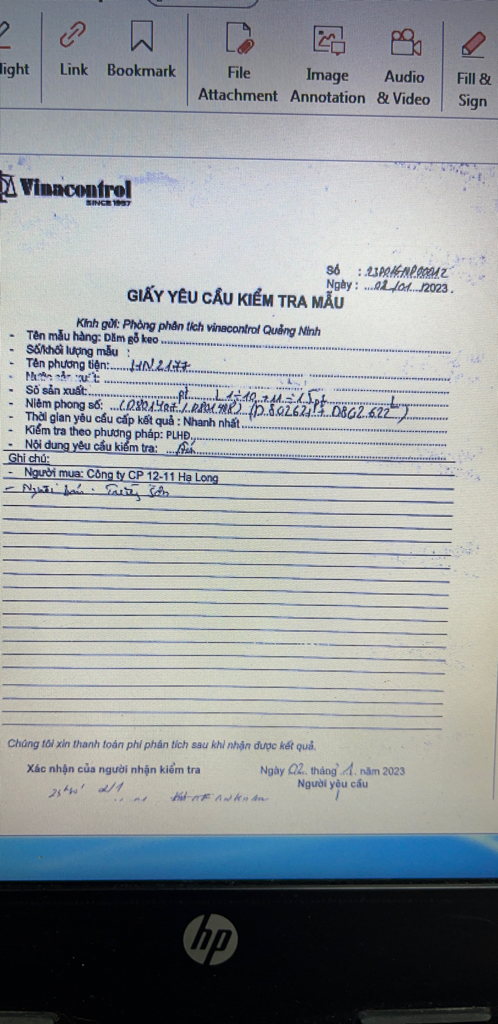 light
Link
Bookmark
File
Attachment
Image
Annotation
Audio
& Video
Fill &
Sign
Vinacontrol
SINCE 1957
Số :
Ngày : ...02./01.../2023.
GIẤY YÊU CẦU KIỂM TRA MẪU
Kính gửi: Phòng phân tích vinacontrol Quảng Ninh
- Tên mẫu hàng: Dăm gỗ keo
- Số/khối lượng mẫu :
- Tên phương tiện: HN 2177
- Nước sản xuất:
- Số sản xuất:
- Niêm phong số:
- Thời gian yêu cầu cấp kết quả : Nhanh nhất
- Kiểm tra theo phương pháp: PLHĐ
- Nội dung yêu cầu kiểm tra:
Ghi chú:
- Người mua: Công ty CP 12-11 Hạ Long
- Người bán :
Chúng tôi xin thanh toán phí phân tích sau khi nhận được kết quả.
Xác nhận của người nhận kiểm tra
Ngày 02. tháng 1. năm 2023
Người yêu cầu
2/1
hp